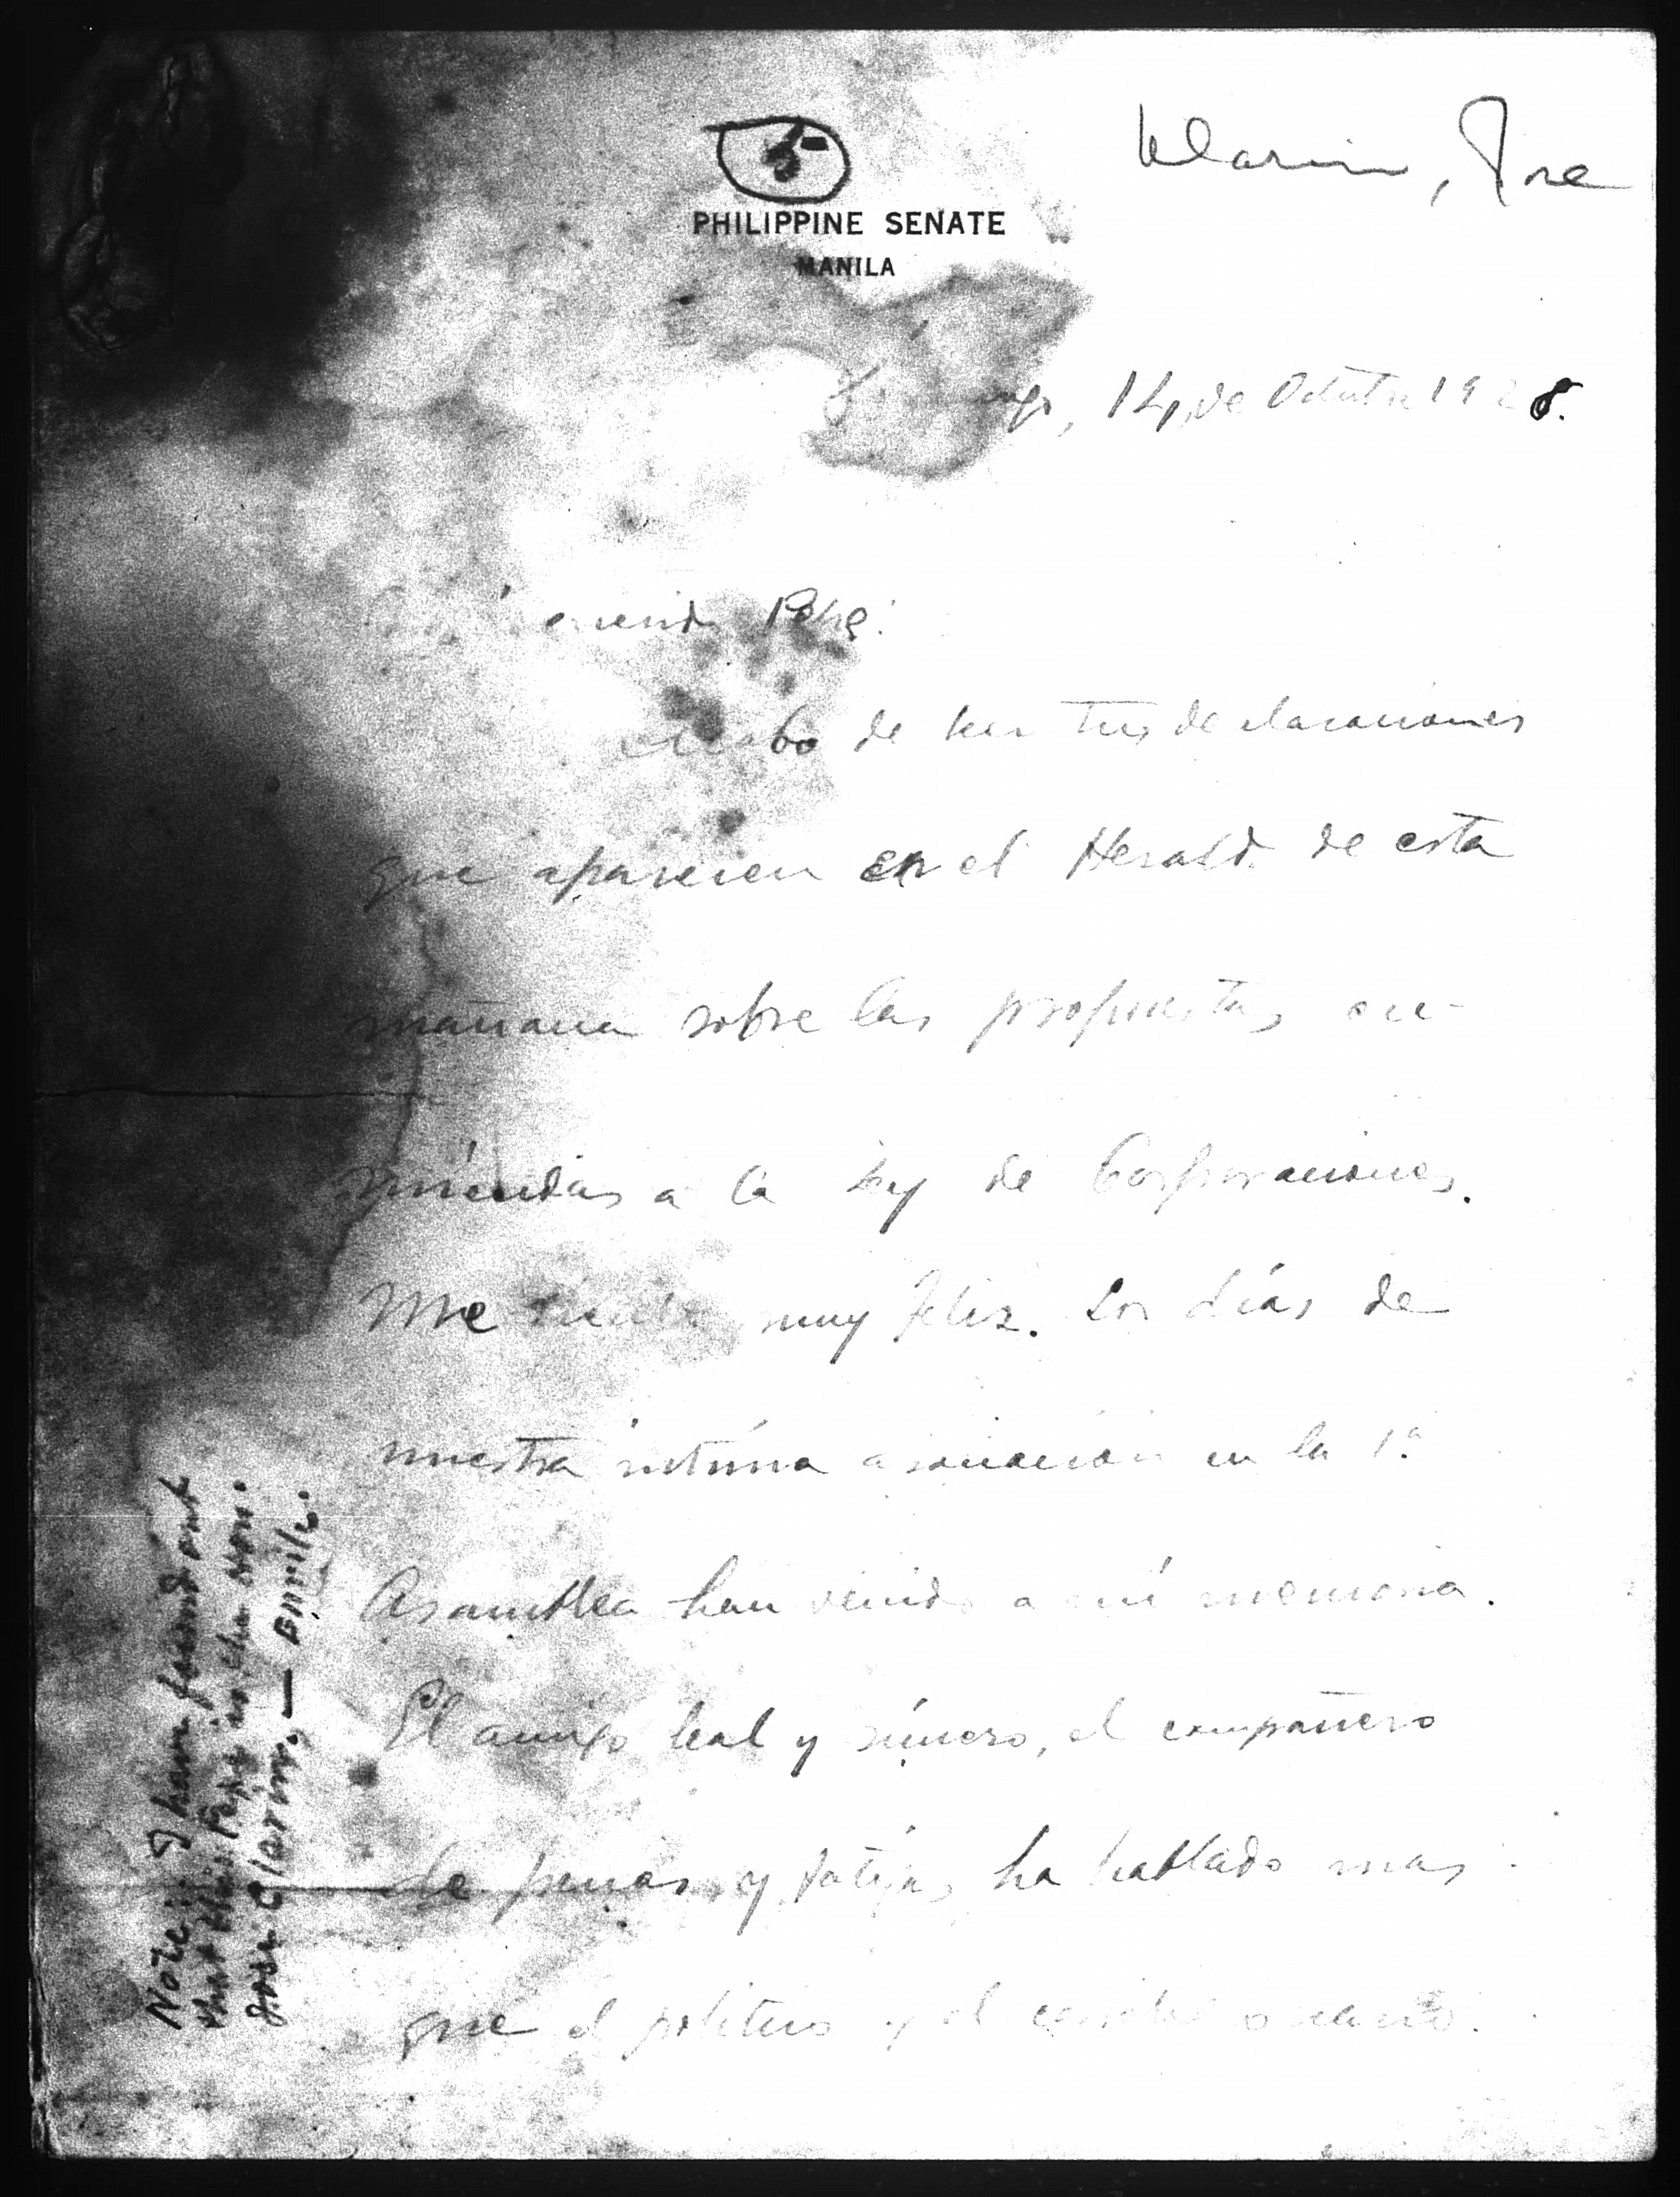 Clarin, Jose
PHILIPPINE SENATE
MANILA
Domingo, 14, de Octubre 1928.
querido Pepe:
Acabo de leer tus declaraciones
que aparecen en el Herald de esta
mañana sobre las propuestas en-
miendas a la Ley de Corporaciones.
Me siento muy feliz. Los días de
nuestra intima asociación en la 1ª
Asamblea han venido a mi memoria.
El amigo leal y sincero, el compañero
de penas y fatigas ha hablado mas
que el politico y el
Note: I have found out
that this Pepe is the Hon.
Jose Clarin, —